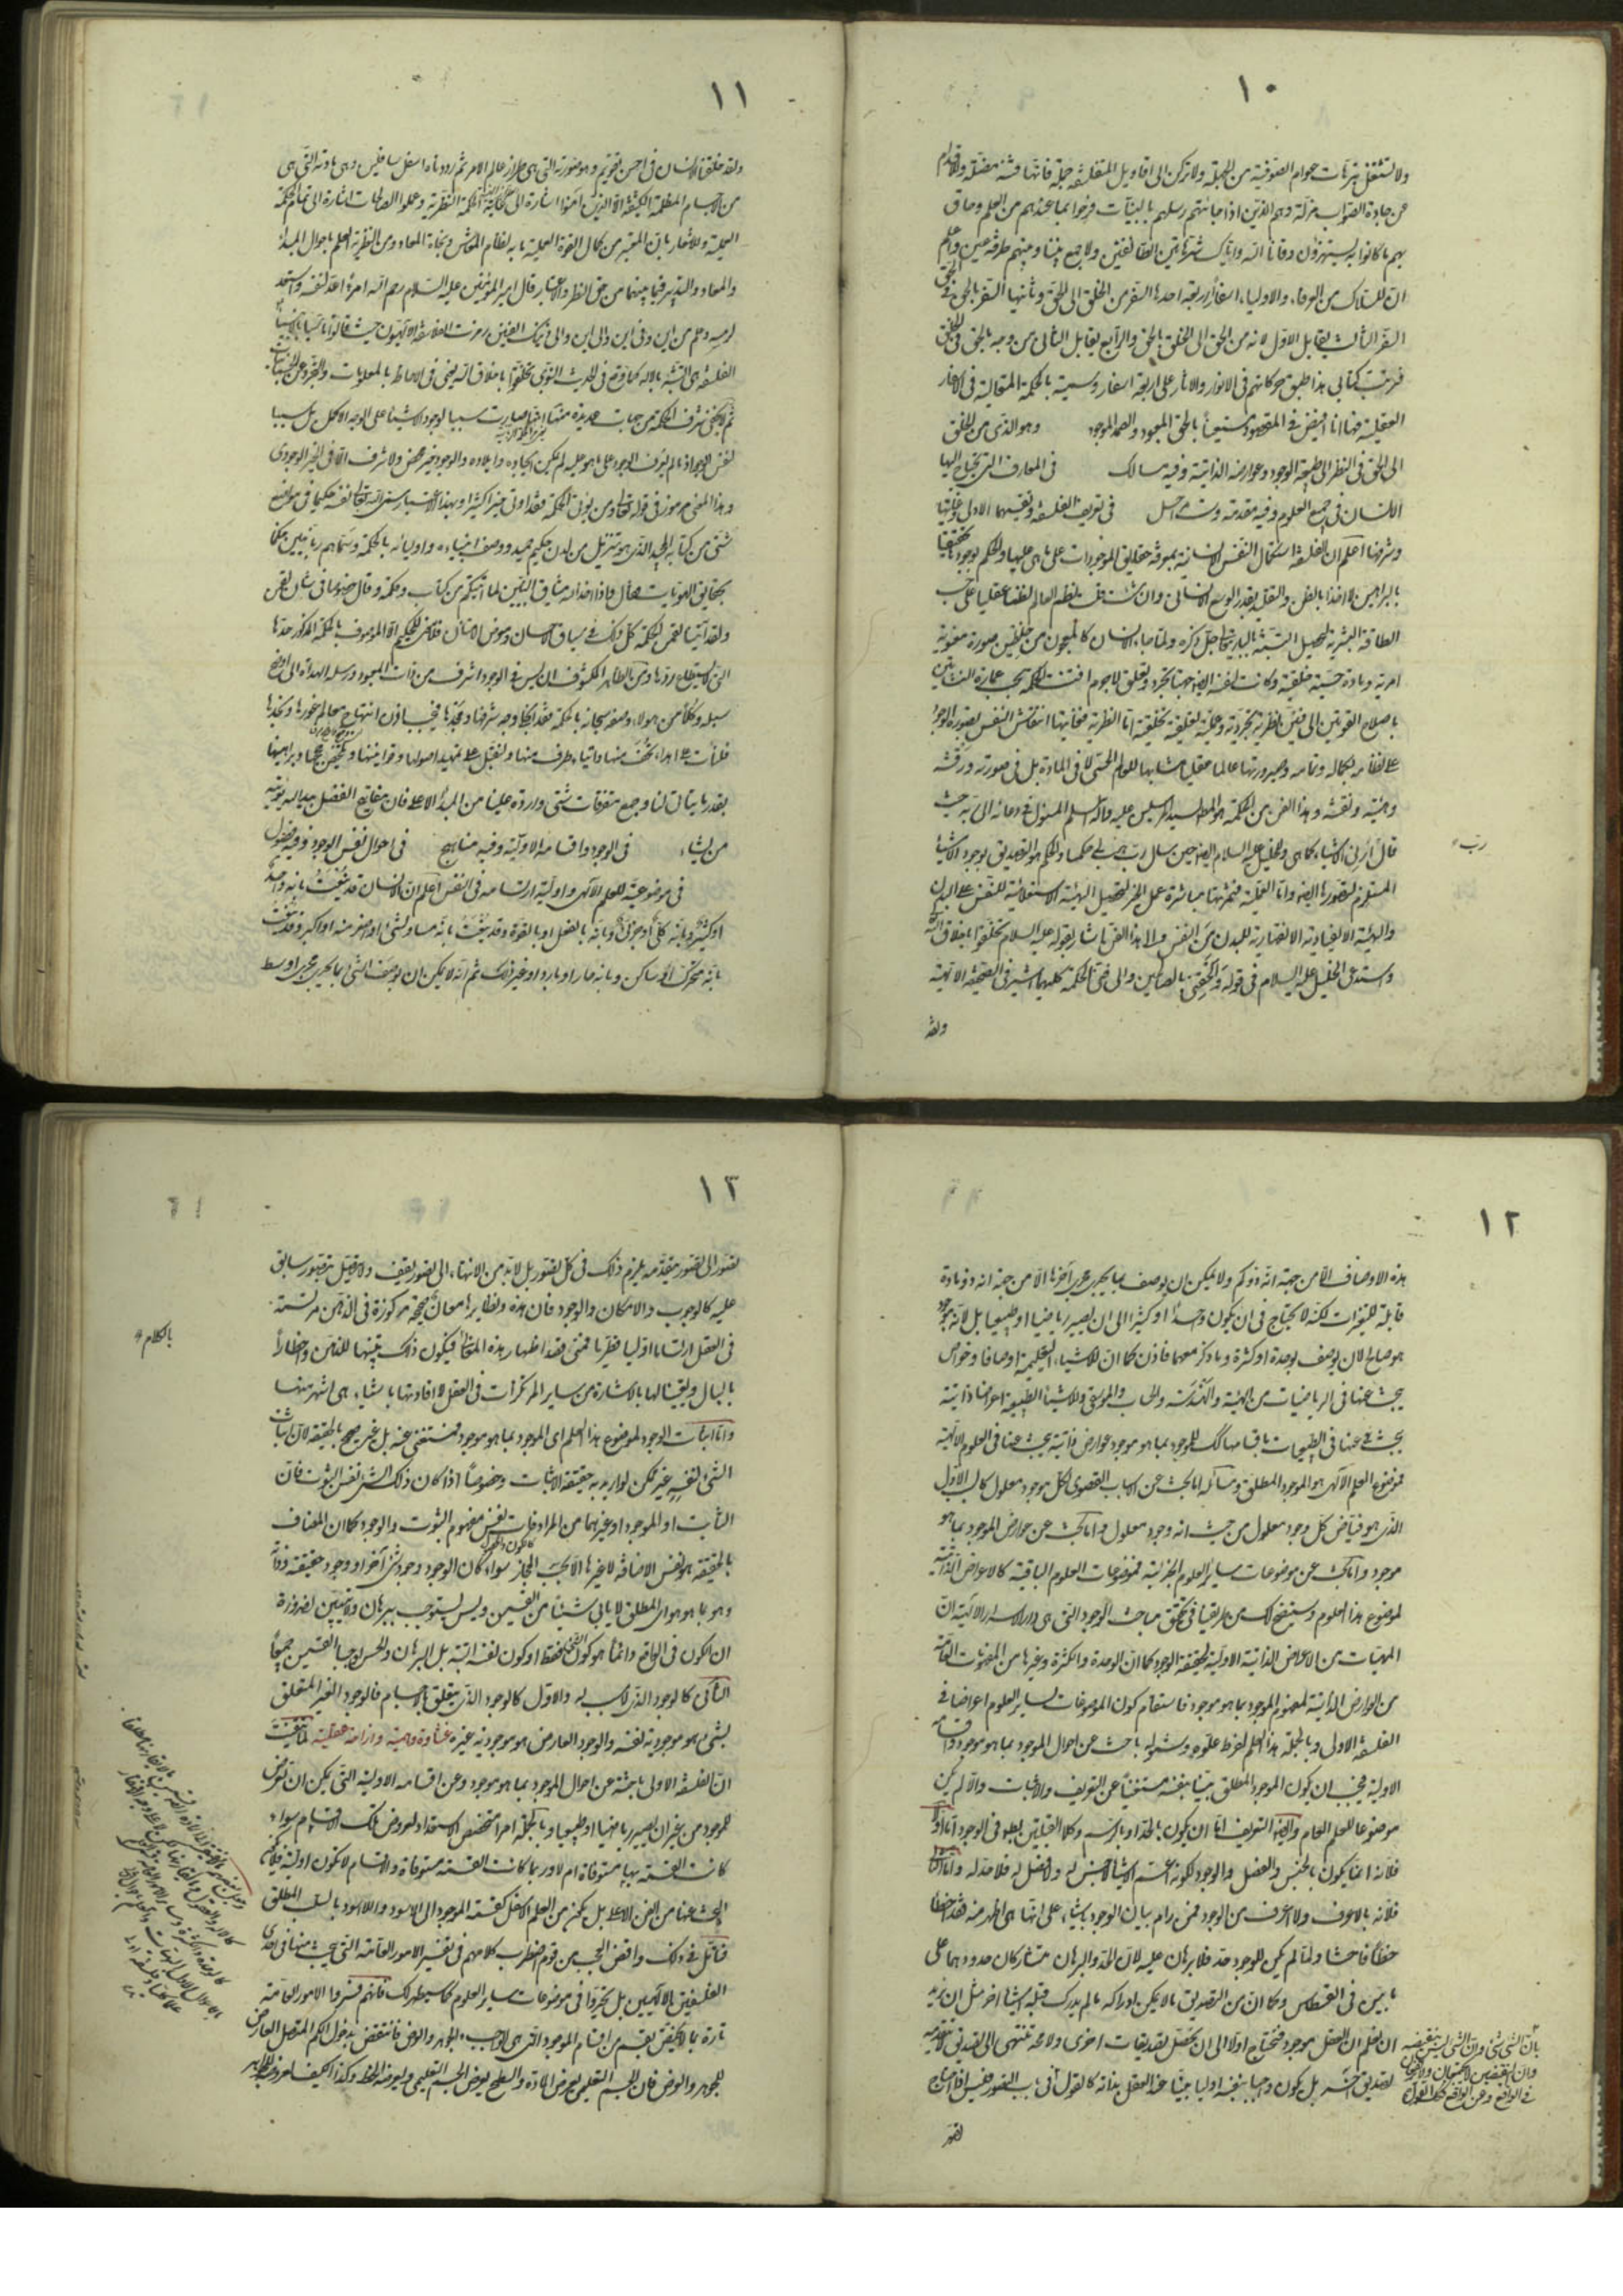 ١٠
ولا تشتغل بترهات عوام الصوفية من الجهلة ولا تركن الى اقاويل المتفلسفة جملة فانها فتنة مضلة وللاقدام
عن جادة الصواب مزلة وهم الذين اذا جاءتهم رسلهم بالبينات فرحوا بما عندهم من العلم وحاق
بهم ما كانوا به يستهزؤن وقانا الله واياك شر هاتين الطائفتين ولا جمع بيننا وبينهم طرفة عين واعلم
ان للسلاك من العرفاء والاولياء اسفارا اربعة احدها السفر من الخلق الى الحق وثانيها السفر بالحق في الحق
السفر الثالث يقابل الاول لانه من الحق الى الخلق بالحق والرابع يقابل الثاني من وجه لانه بالحق في الخلق
فرتبت كتابي هذا طبق حركاتهم في الانوار والاثار على اربعة اسفار وسميته بالحكمة المتعالية في الاسفار
العقلية فها انا افيض في المقصود مستعينا بالحق المعبود والصمد الموجود وهو الذي من الخلق
الى الحق في النظر الى طبيعة الوجود وعوارضه الذاتية وفيه مسالك في المعارف التي يحتاج اليها
الانسان في جميع العلوم وفيه مقدمة وست مراحل في تعريف الفلسفة وتقسيمها الاولي وغايتها
وشرفها اعلم ان الفلسفة استكمال النفس الانسانية بمعرفة حقايق الموجودات على ما هي عليها والحكم بوجودها تحقيقا
بالبراهين لا اخذا بالظن والتقليد بقدر الوسع الانساني وان شئت قلت نظم العالم نظما عقليا على حسب
الطاقة البشرية ليحصل التشبه بالباري تعالى جل ذكره ولما جاء الانسان كالمعجون من خلطين صورة معنوية
امرية ومادة حسية خلقية وكانت لنفسه ايضا جهتا تجرد وتعلق لا جرم افتنت الحكمة بحسب عمارة النشأتين
باصلاح القوتين الى فنين نظرية تجردية وعملية تعلقية تخلقية اما النظرية فغايتها انتقاش النفس بصورة الوجود
على نظامه بكماله وتمامه وصيرورتها عالما عقليا مشابها للعالم الحسي لا في المادة بل في صورته ورقشه
وهيئته ونقشه وهذا الفن من الحكمة هو المطلوب لسيد المرسلين عليه وآله السلام المسئول في دعائه الى ربه حيث
قال ارني الاشياء كما هي وللخليل عليه السلام ايضا حين سأل رب هب لي حكما والحكم هو التصديق بوجود الاشياء
المستلزم لتصورها ايضا واما العملية فثمرتها مباشرة عمل الخير لتحصيل الهيئة الاستعلائية للنفس على البدن
والهيئة الانقيادية الانقهارية للبدن من النفس والى هذا الفن اشار بقوله عليه السلام تخلقوا باخلاق الله
واستدعى الخليل عليه السلام في قوله والحقني بالصالحين والى فني الحكمة كليهما اشير في الصحيفة الالهية
ولقد
رب
١١
ولقد خلقنا الانسان في احسن تقويم وهو صورته التي هي طراز عالم الامر ثم رددناه اسفل سافلين وهي مادته التي هي
من الاجسام المظلمة الكثيفة الا الذين آمنوا اشارة الى غاية الحكمة النظرية وعملوا الصالحات اشارة الى تمام الحكمة
العملية وللاشعار بان المعتبر من كمال القوة العملية ما به نظام المعاش ونجاة المعاد ومن النظرية العلم باحوال المبدأ
والمعاد والتدبر فيما بينهما من حق النظر والاعتبار قال امير المؤمنين عليه السلام رحم الله امرءا اعد لنفسه واستعد
لرمسه وعلم من اين وفي اين والى اين والى ذينك الفنين رمزت الفلاسفة الالهيون حيث قالوا تأسيا بالانبياء
الفلسفة هي التشبه بالاله كما وقع في الحديث النبوي تخلقوا باخلاق الله يعني في الاحاطة بالمعلومات والتجرد عن الجسمانيات
ثم لا يخفى شرف الحكمة من جهات عديدة منها انها صارت سببا لوجود الاشياء على الوجه الاكمل بل سببا
لنفس الوجود اذ ما لم يعرف الوجود على ما هو عليه لم يمكن ايجاده وايلاده والوجود خير محض ولا شرف الا في الخير الوجودي
وهذا المعنى مرموز في قوله تعالى ومن يؤتى الحكمة فقد اوتي خيرا كثيرا وبهذا الاعتبار سمى الله تعالى نفسه حكيما في مواضع
شتى من كتابه المجيد الذي هو تنزيل من لدن حكيم حميد ووصف انبياءه واولياءه بالحكمة وسماهم ربانيين حكماء
بحقايق الهويات فقال واذ اخذ الله ميثاق النبيين لما آتيتكم من كتاب وحكمة وقال خصوصا في شأن لقمن
ولقد آتينا لقمن الحكمة كل ذلك في سياق الاحسان ومعرض الامتنان فلا معنى للحكيم الا الموصوف بالحكمة المذكور حدها
التي لا يستطاع ردها ومن الظاهر المكشوف ان ليس في الوجود اشرف من ذات المعبود ورسله الهداة الى اوضح
سبله وكلا من هؤلاء وصفه سبحانه بالحكمة فقد انجلى وجه شرفها ومجدها فيجب اذن انتهاج معالم غورها ونجدها
فلنأت على اهداء تحف منها وايتاء طرف منها ولنقبل على تمهيد اصولها وقوانينها وتلخيص حججها وبراهينها
بقدر ما يتأتى لنا وجمع متفرقات شتى واردة علينا من المبدأ الاعلى فان مفاتيح الفضل بيد الله يؤتيه
من يشاء في الوجود واقسامه الاولية وفيه مناهج في احوال نفس الوجود وفيه فصول
في موضوعيته للعلم الآلهي واولية ارتسامه في النفس اعلم ان الانسان قد ينعت بانه واحد
او كثير وبانه كلي او جزئي وبانه بالفعل او بالقوة وقد ينعت بانه مساو لشئ او اصغر منه او اكبر وقد ينعت
بانه متحرك او ساكن وبانه حار او بارد او غير ذلك ثم انه لا يمكن ان يوصف الشئ بما يجري مجرى اوسط
١٢
هذه الاوصاف الا من جهة انه ذو كم ولا يمكن ان يوصف بما يجري مجرى آخرها الا من جهة انه ذو مادة
قابلة للتغيرات لكنه لا يحتاج في ان يكون واحدا او كثيرا الى ان يصير رياضيا او طبيعيا بل لانه موجود
هو صالح لان يوصف بوحدة او كثرة وما ذكر معهما فاذن كما ان للاشياء التعليمية اوصافا وخواص
يبحث عنها في الرياضيات من الهيئة والهندسة والحساب والموسيقى وللاشياء الطبيعية اعراضا ذاتية
يبحث عنها في الطبيعيات باقسامها كذلك للموجود بما هو موجود عوارض ذاتية يبحث عنها في العلوم الالهية
فموضوع العلم الالهي هو الموجود المطلق ومسائله اما بحث عن الاسباب القصوى لكل موجود معلول كالسبب الاول
الذي هو فياض كل وجود معلول من حيث انه وجود معلول واما بحث عن عوارض الموجود بما هو
موجود واما بحث عن موضوعات ساير العلوم الجزئية فموضوعات العلوم الباقية كالاعراض الذاتية
لموضوع هذا العلم وسيتضح لك من طريقنا في تحقيق مباحث الوجود التي هي دار الاسرار الالهية ان
المهيات من الاعراض الذاتية الاولية لحقيقة الوجود كما ان الوحدة والكثرة وغيرها من المفهومات العامة
من العوارض الذاتية لمفهوم الموجود بما هو موجود فاستقام كون الموضوعات لساير العلوم اعراضا في
الفلسفة الاولى وبالجملة هذا العلم لفرط علوه وشموله باحث عن احوال الموجود بما هو موجود واقسامه
الاولية فيجب ان يكون الموجود المطلق بينا بنفسه مستغنيا عن التعريف والاثبات والا لم يكن
موضوعا للعلم العام وايضا التعريف اما ان يكون بالحد او بالرسم وكلا القسمين باطل في الوجود اما الاول
فلانه انما يكون بالجنس والفصل والوجود لكونه اعم الاشياء لا جنس له ولا فصل له فلا حد له واما الثاني
فلانه بالاعرف ولا اعرف من الوجود فمن رام بيان الوجود باشياء على انها هي اظهر منه فقد اخطأ
خطأ فاحشا ولما لم يكن للوجود حد فلا برهان عليه لان الحد والبرهان متشاركان في حدودهما على
ما تبين في القسطاس وكما ان من التصديق ما لا يمكن ادراكه ما لم يدرك قبله اشياء اخر مثل ان نريد
ان نعلم ان العقل موجود فنحتاج اولا الى ان نحصل تصديقات اخرى ولا محة تنتهي الى تصديق لا يتقدمه
تصديق آخر بل يكون واجبا بنفسه اوليا بينا عند العقل بذاته كالقول
بان الشئ شئ وان الشئ ليس بنقيضه
وان النقيضين لا يجتمعان ولا يرتفعان
في الواقع وعن الواقع فكذا القول
في باب التصور فليس اذا احتاج
تصور
١٣
تصور الى تصور يتقدمه يلزم ذلك في كل تصور بل لابد من الانتهاء الى تصور يقف ولا يتصل بتصور سابق
عليه كالوجوب والامكان والوجود فان هذه ونظايرها معان صحيحة مركوزة في الذهن مرتسمة
في العقل ارتساما اوليا فطريا فمتى قصد اظهار هذه المعاني
بالكلام
فيكون ذلك تنبيها للذهن واخطارا
بالبال وتعيينا لها بالاشارة من ساير المرتكزات في العقل لا افادتها باشياء هي اشهر منها
واما اثبات الوجود لموضوع هذا العلم اي الموجود بما هو موجود فمستغنى عنه بل غير صحيح بالحقيقة لان اثبات
الشئ لنفسه غير ممكن لو اريد به حقيقة الاثبات وخصوصا اذا كان ذلك الشئ نفس الثبوت فان
الثابت او الموجود او غيرهما من المرادفات نفس مفهوم الثبوت والوجود كما ان المضاف
بالحقيقة هو نفس الاضافة لا غيرها الا بحسب المجاز سواء كان الوجود وجود شئ آخر او وجود حقيقته وذاته
وهو بما هو هو اي المطلق لا يأبى شيئا من القسمين وليس يستوجب ببرهان ولا تبيين بضرورة
ان الكون في الواقع دائما هو كون الشئ فقط او كون نفسه البتة بل البرهان والحس اوجبا القسمين جميعا
الثاني كالوجود الذي لا سبب له والاول كالوجود الذي يتعلق بالاجسام فالوجود الغير المتعلق
بشئ هو موجودية نفسه والوجود العارض هو موجودية غيره غشاوة وهمية وازاحة عقلية لما تيقنت
ان الفلسفة الاولى باحثة عن احوال الموجود بما هو موجود وعن اقسامه الاولية التي يمكن ان تعرض
للموجود من غير ان يصير رياضيا او طبيعيا وبالجملة امرا متخصص الاستعداد لعروض تلك الاقسام سواء
كانت القسمة بها مستوفاة ام لا وربما كانت القسمة مستوفاة والاقسام لا تكون اولية فلا يكون
البحث عنها من الفن الاعلى بل يكون من العلم الاخص كقسمة الموجود الى الاسود واللااسود بالسلب المطلق
فتأمل في ذلك واقض العجب من قوم اضطرب كلامهم في تفسير الامور العامة التي يبحث عنها في احدى
الفلسفتين الالهيتين بل تحيروا في موضوعات ساير العلوم كما سيظهر لك فانهم فسروا الامور العامة
تارة بما لا يختص بقسم من اقسام الموجود التي هي الواجب والجوهر والعرض فانتقض بدخول الكم المتصل العارض
للجوهر والعرض فان الجسم التعليمي يعرض المادة والسطح يعرض الجسم التعليمي ويعرضه الخط وكذا الكيف لعروضه للجواهر